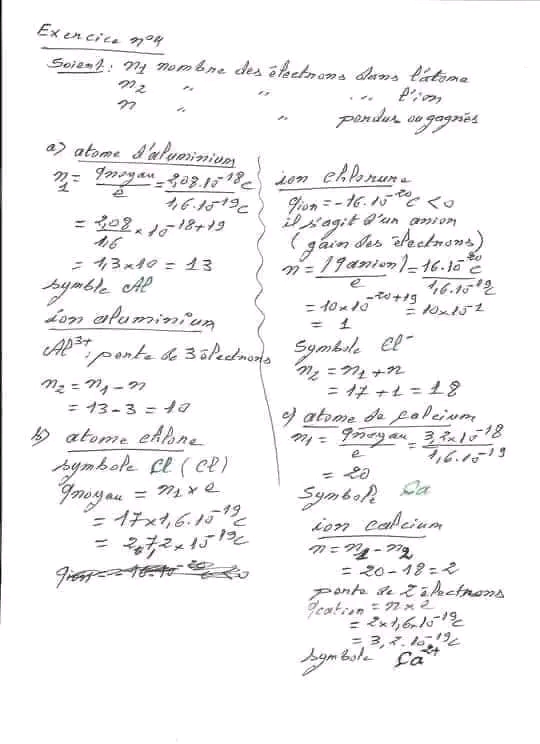 Exercice n°4
Soient : n1 nombre des électrons dans l'atome
n2 " " " l'ion
n " " perdus ou gagnés
a) atome d'aluminium
n1 = qnoyau/e = 2,08.10^-18c/1,6.10^-19c
= 2,08/1,6 × 10^-18+19
= 1,3×10 = 13
symble Al
ion aluminium
Al^3+ : perte de 3 électrons
n2 = n1 - n
= 13 - 3 = 10
b) atome chlore
symbole Cl (Cl)
qnoyau = n1 × e
= 17×1,6.10^-19c
= 27,2 × 10^-19c
ion chlorure
qion = -16.10^-20c < 0
il s'agit d'un anion
(gain des électrons)
n = |qanion|/e = 16.10^-20c/1,6.10^-19c
= 10×10^-20+19 = 10×10^-1
= 1
symbole Cl^-
n2 = n1 + n
= 17 + 1 = 18
c) atome de calcium
n1 = qnoyau/e = 3,2×10^-18/1,6.10^-19
= 20
Symbole Ca
ion calcium
n = n1 - n2
= 20 - 18 = 2
perte de 2 électrons
qcation = n × e
= 2×1,6.10^-19c
= 3,2.10^-19c
symbole Ca^2+